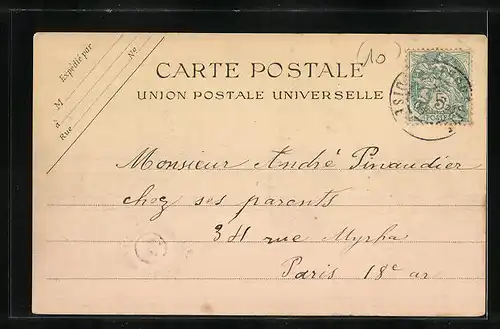 Expédié par
M
No
à
Rue
(10)
CARTE POSTALE
UNION POSTALE UNIVERSELLE
5
Monsieur André Pinaudier
chez ses parents
34 rue Myrha
Paris 18e ar